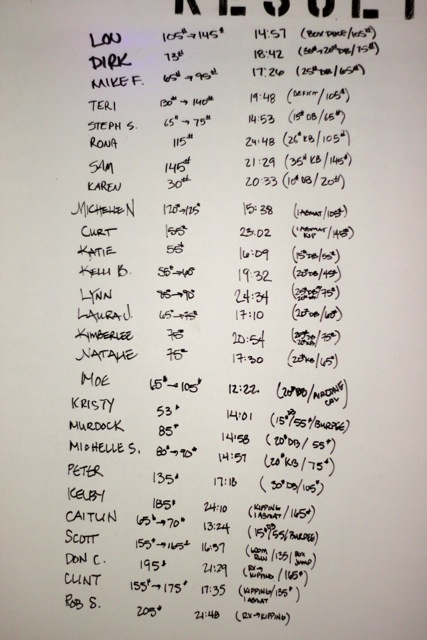 RESULT
LOU 105#→145# 14:57 (BOX DIPS/105#)
DIRK 73# 18:42 (30#→20#DB/75#)
MIKE F. 65#→95# 17:26 (25#DB/65#)
TERI 130#→140# 19:48 (DEFICIT/105#)
STEPH S. 65#→75# 14:53 (15#DB/65#)
RONA 115# 24:48 (26#KB/105#)
SAM 145# 21:29 (35#KB/145#)
KAREN 30# 20:33 (10#DB/20#)
MICHELLE N 120#→125# 15:38 (1 ABMAT/105#)
CURT 155# 23:02 (1 ABMAT KIP/145#)
KATIE 55# 16:09 (15#DB/55#)
KELLI B. 55#→60# 19:32 (20#DB/45#)
LYNN 24:34
LAURA J. 65#→75# 17:10 (20#DB/60#)
KIMBERLEE 75# 20:54
NATALIE 75# 17:30 (20#KB/65#)
MOE 65#→105# 12:22 (20#DB/AIRDYNE CAL)
KRISTY 53# 14:01 (15#DB/55#/BURPEE)
MURDOCK 85# 14:58 (20#DB/55#)
MICHELLE S. 80#→90# 14:57 (20#KB/75#)
PETER 135# 17:18 (30#DB/105#)
KELBY 185# 24:10 (KIPPING 1 ABMAT/165#)
CAITLIN 65#→70# 13:24 (15#DB/55/BURPEE)
SCOTT 155#→165# 16:37 (600M RUN/135/BOX JUMP)
DON C. 195# 21:29 (RX→KIPPING/165#)
CLINT 155#→175# 17:35 (KIPPING/135# 1 ABMAT)
ROB S. 205# 21:48 (RX→KIPPING)